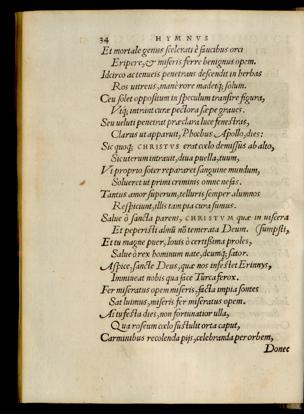 34 HYMNVS
Et mortale genus scelerati è faucibus orci
Eripere, & miseris ferre benignus opem.
Idcirco ac tenueis penetrans descendit in herbas
Ros vitreus, manè rore madetq; solum.
Ceu solet oppositum in speculum transire figura,
Vtq; intrant curæ pectora sæpe graues.
Seu ueluti penetrat præclara luce fenestras,
Clarus ut apparuit, Phœbus Apollo, dies:
Sic quoq; CHRISTVS erat cœlo demissus ab alto,
Sic uterum intrauit, diua puella, tuum,
Vt proprio soter repararet sanguine mundum,
Solueret ut primi criminis omne nefas.
Tantus amor superum, telluris semper alumnos
Respiciunt, illis tam pia cura sumus.
Salue ô sancta parens, CHRISTVM quæ in uiscera
Et peperisti almũ nõ temerata Deum. (sumpsti,
Et tu magne puer, Iouis ô certissima proles,
Salue ô rex hominum nate, deumq; sator.
Aspice, sancte Deus, quæ nos infestet Erinnys,
Immineat nobis qua face Turca ferox.
Fer miseratus opem miseris, facta impia fontes
Sat luimus, miseris fer miseratus opem.
At tu festa dies, non fortunatior ulla,
Qua roseum cœlo sustulit orta caput,
Carminibus recolenda pijs, celebranda per orbem,
Donec